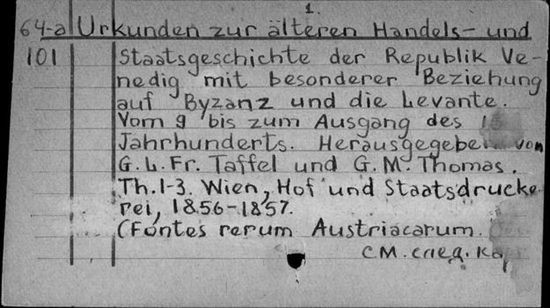 1.
64-a Urkunden zur älteren Handels- und
101 Staatsgeschichte der Republik Ve-
nedig mit besonderer Beziehung
auf Byzanz und die Levante.
Vom 9 bis zum Ausgang des
Jahrhunderts. Herausgegeben von
G. L. Fr. Taffel und G. M. Thomas.
Th. 1-3. Wien, Hof und Staatsdrucke
rei, 1856-1857.
(Fontes rerum Austriacarum.
См. след.